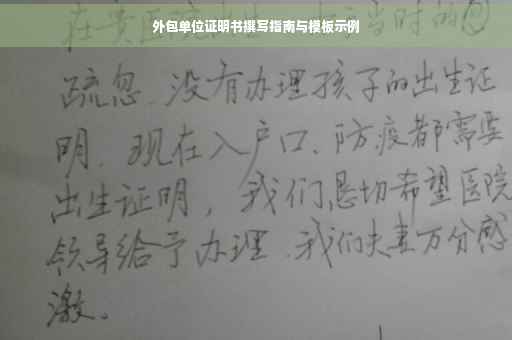 外包单位证明书撰写指南与模板示例
在贵医院出生，由于当时的
疏忽，没有办理孩子的出生证
明。现在入户口、防疫都需要
出生证明，我们恳切希望医院
领导给予办理，我们夫妻万分感
激。